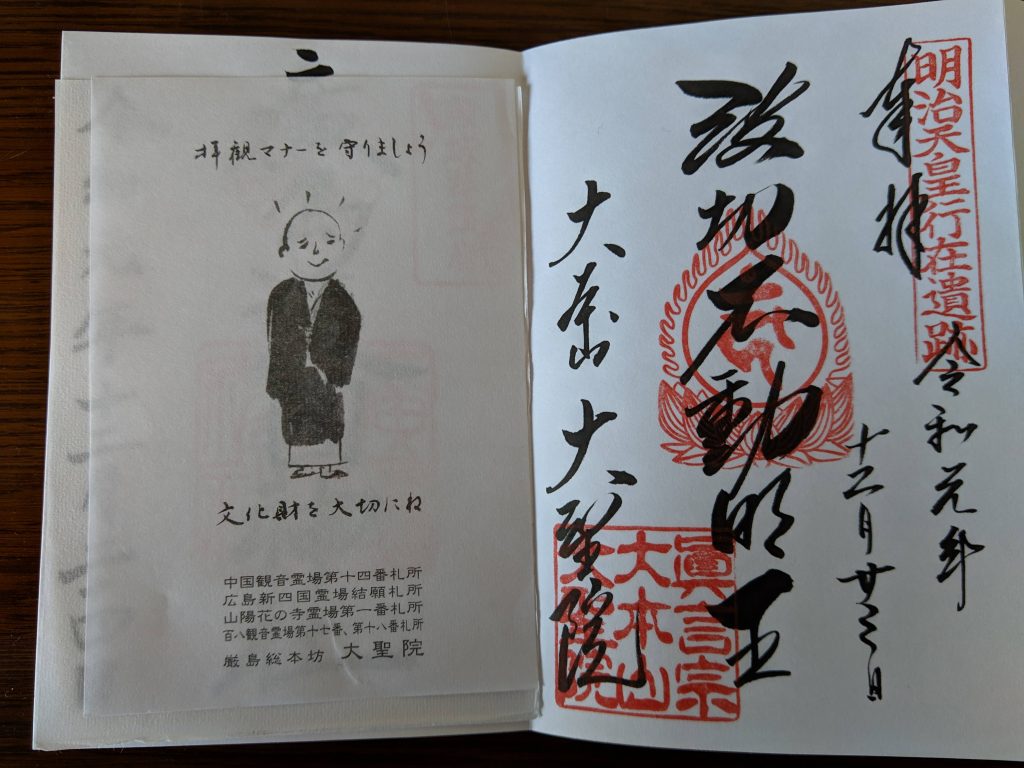 拝観マナーを守りましょう
文化財を大切にね
中国観音霊場第十四番札所
広島新四国霊場結願札所
山陽花の寺霊場第一番札所
百八観音霊場第十七番、第十八番札所
厳島総本坊 大聖院
明治天皇行在遺跡
奉拝
令和元年
十二月廿三日
波切不動明王
大本山 大聖院
眞言宗
大本山
大聖院